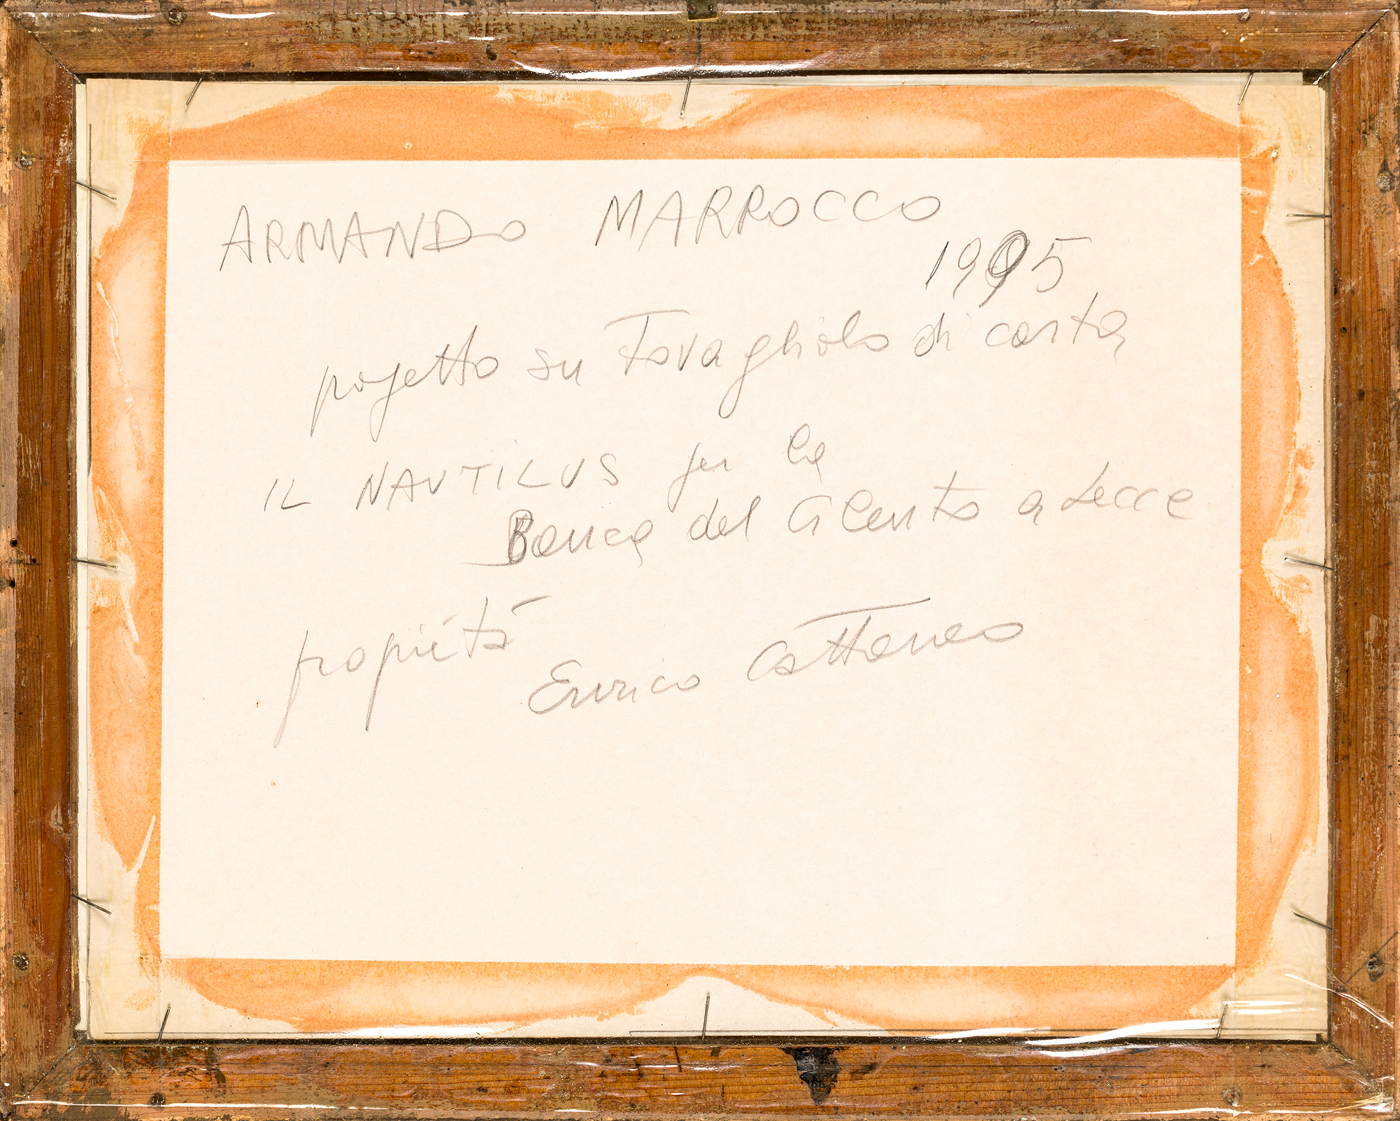 ARMANDO MARROCCO
1995
pogetto su Tovagliolo di carta
IL NAUTILUS per la
Banca del Cilento a Lecce
propietà
Enrico Cattaneo